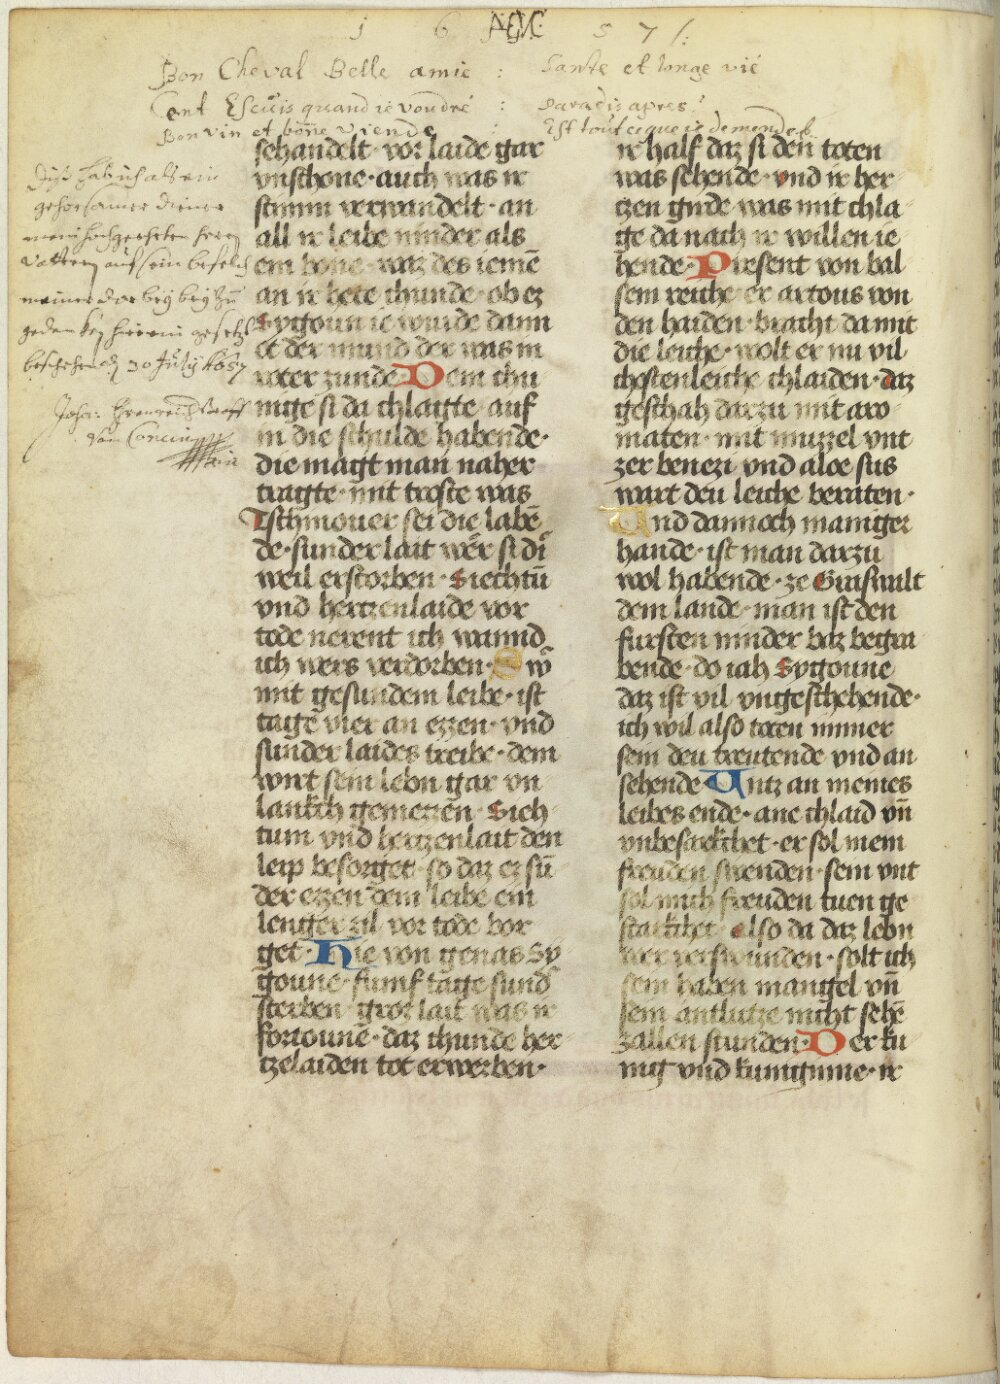 1 6 57/:
Bon Cheval Belle amie : Sante et longe vie
Cent Escuis quand ie voudré : Paradis apres:
Bon vin et bone viende : Est tout ceque ie demendes
diß hab ich als ein
gehorsamer diener
meines hochgeehrten herrn
Vattern auf sein befelch
meiner dar bey zu
gedenken herein gesetzt
beschehen den 30 Julÿ 1657
Johan:
von
sehandelt· vor laide gar
vnschone· auch was ir
stimm verwandelt· an
all ir leibe ninder als
ein bone· waz des iemē
an ir hete chunde· ob ez
Sygoun ie wurde dann
ot der mund der was in
roter zunde· Dem chu
nige si da chlagte· auf
in die schulde habende·
die magt man naher
tragte· mit troste was
Tschinouer sei die labē
de· sunder lait wer si di
weil erstorben· Siechtū
vnd hertzenlaide vor
tode nerent ich wannd
ich wers verdorben· Sw
mit gesundem leibe· ist
tage vier an ezzen· vnd
sunder laides treibe· dem
wirt sein lebn gar vn
lankch gemezzen· Siech
tum vnd hertzenlait den
leip besorget· so daz ez sū
der ezzen dem leibe ein
lenger zil vor tode bor
get· Hie von genas Sy
goune· fumf tage sund
sterben· groz lait was ir
fortounē· daz chunde her
tzelaiden tot erwerben·
ir half daz si den toten
was sehende· vnd ir her
tzen girde was mit chla
ge da nach ir willen ie
hende· Present von bal
sem reiche· er artous von
den haiden· bracht da mit
die leiche· wolt er nu vil
chostenleiche chlaiden· daz
geschah darzu mit aro
maten· mit muzzel vnt
zer benezi vnd aloe sus
wart deu leiche beraten·
Und dannoch maniger
hande· ist man darzu
wol habende· ze Graswalt
dem lande· man ist den
fursten ninder baz begra
bende· do iah Sygoune
daz ist vil vngeschehende·
ich wil also toten immer
sein deu treutende vnd an
sehende Untz an meines
leibes ende· ane chlaid vn̄
vnbesarkchet· er sol mein
freuden swenden· sein vnt
sol mich freuden tuen ge
starkchet· also da daz lebn
wer verswunden· solt ich
sein haben mangel vn̄
sein antlutze nicht sehē
zallen stunden· Der ku
nig vnd kuniginne· ir